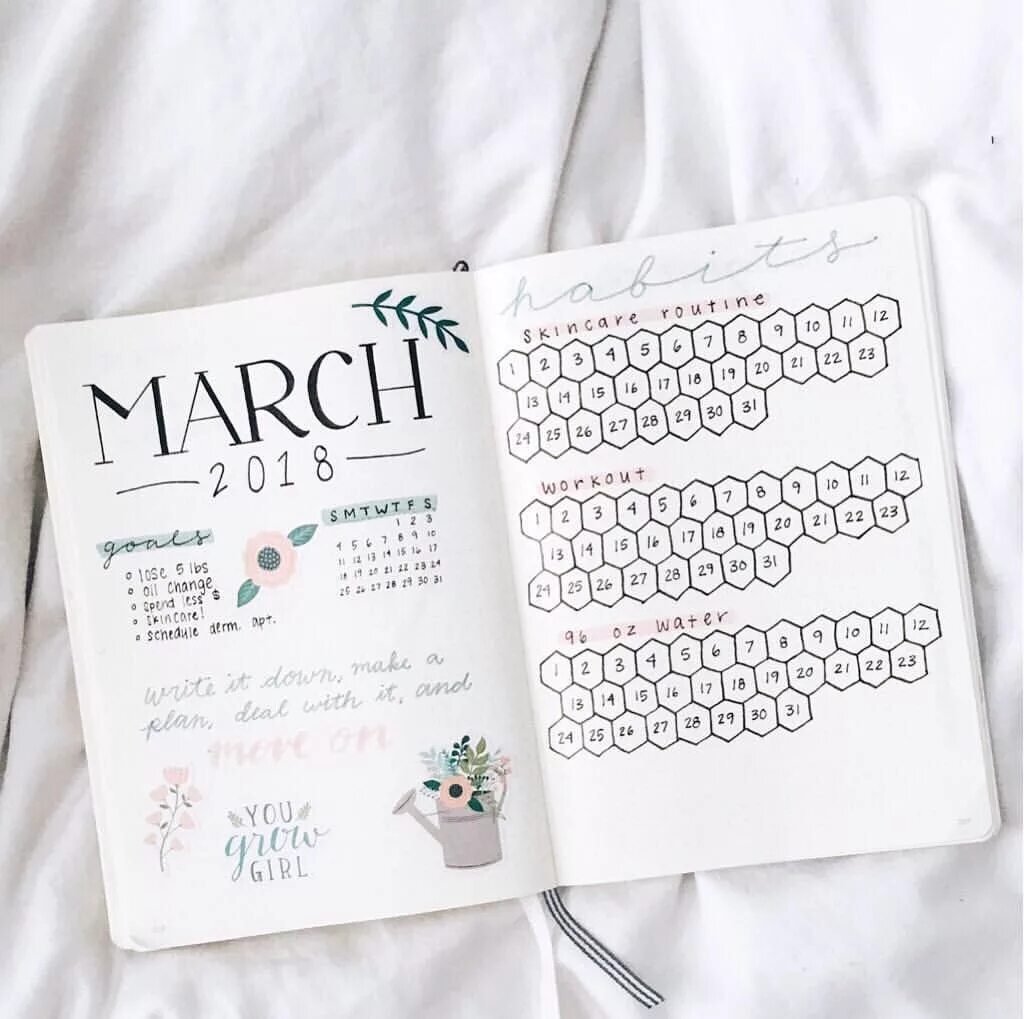 MARCH
2018
goals
lose 5 lbs
oil change
spend less $
skincare!
schedule derm. apt.
S M T W T F S
1 2 3
4 5 6 7 8 9 10
11 12 13 14 15 16 17
18 19 20 21 22 23 24
25 26 27 28 29 30 31
write it down, make a
plan, deal with it, and
move on
YOU
grow
GIRL
habits
skincare routine
1 2 3 4 5 6 7 8 9 10 11 12
13 14 15 16 17 18 19 20 21 22 23
24 25 26 27 28 29 30 31
workout
1 2 3 4 5 6 7 8 9 10 11 12
13 14 15 16 17 18 19 20 21 22 23
24 25 26 27 28 29 30 31
96 oz water
1 2 3 4 5 6 7 8 9 10 11 12
13 14 15 16 17 18 19 20 21 22 23
24 25 26 27 28 29 30 31